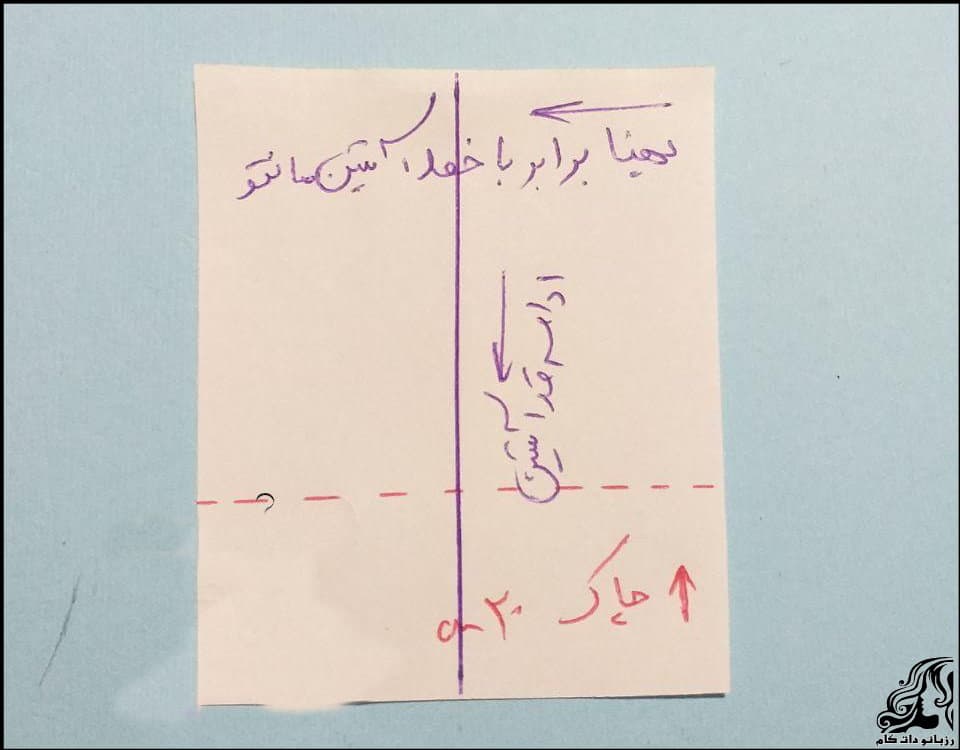 پهنا برابر با خود آستین مانتو
ادامه قد آستین
چاک ۳۰ سا
رزبانو دات کام